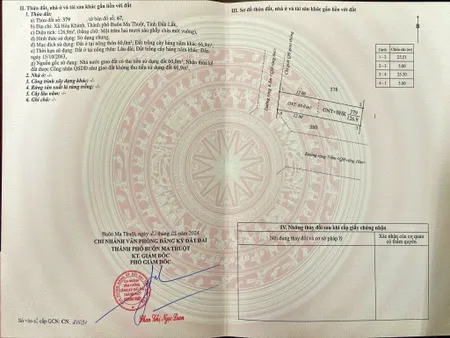 II. Thửa đất, nhà ở và tài sản khác gắn liền với đất
1. Thửa đất:
a) Thửa đất số: 379 , tờ bản đồ số: 67,
b) Địa chỉ: Xã Hòa Khánh, Thành phố Buôn Ma Thuột, Tỉnh Đắk Lắk,
c) Diện tích: 126,9m², (bằng chữ: Một trăm hai mươi sáu phẩy chín mét vuông),
d) Hình thức sử dụng: Sử dụng chung,
đ) Mục đích sử dụng: Đất ở tại nông thôn 60,0m²; Đất trồng cây hàng năm khác 66,9m²,
e) Thời hạn sử dụng: Đất ở tại nông thôn: Lâu dài; Đất trồng cây hàng năm khác: Đến
ngày 15/10/2063,
g) Nguồn gốc sử dụng: Nhà nước giao đất có thu tiền sử dụng đất 60,0m²; Nhận thừa kế
đất được Công nhận QSDĐ như giao đất không thu tiền sử dụng đất 66,9m²,
2. Nhà ở: -/-
3. Công trình xây dựng khác: -/-
4. Rừng sản xuất là rừng trồng: -/-
5. Cây lâu năm: -/-
6. Ghi chú: -/-
Buôn Ma Thuột, ngày
CHI NHÁNH VĂN PHÒNG ĐĂNG KÝ ĐẤT ĐAI
THÀNH PHỐ BUÔN MA THUỘT
KT. GIÁM ĐỐC
PHÓ GIÁM ĐỐC
Phan Thị Ngọc Loan
Số vào sổ cấp GCN: CN
III. Sơ đồ thửa đất, nhà ở và tài sản khác gắn liền với đất
B
Chỉ giới QH giao thông
378
12.00
ONT: 60.0 m²
ONT+BHK
379
126.9
12.00
380
Cạnh
Chiều dài (m)
1 - 2
25.51
2 - 3
5.00
3 - 4
25.30
4 - 1
5.00
IV. Những thay đổi sau khi cấp giấy chứng nhận
Nội dung thay đổi và cơ sở pháp lý
Xác nhận của cơ quan
có thẩm quyền